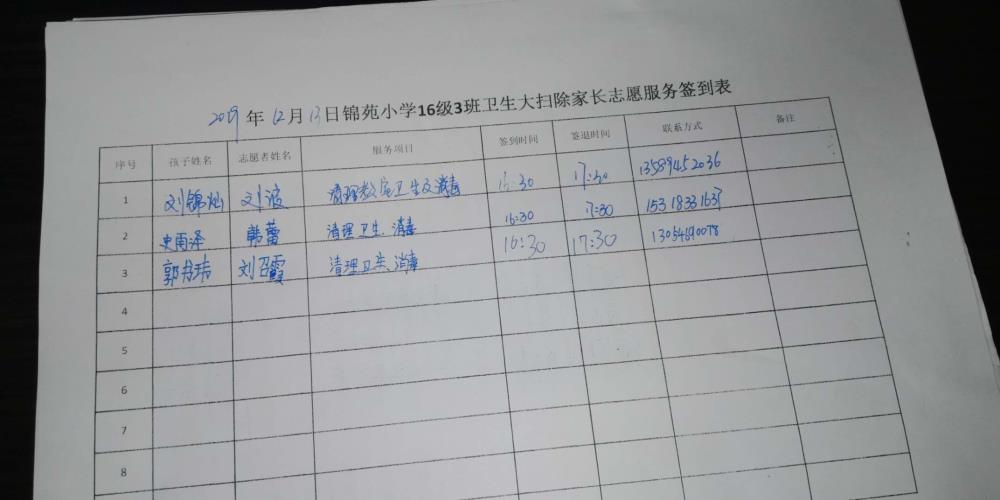 2019年12月13日锦苑小学16级3班卫生大扫除家长志愿服务签到表
序号 孩子姓名 志愿者姓名 服务项目 签到时间 签退时间 联系方式 备注
1 刘锦灿 刘波 清理教室卫生及消毒 16:30 17:30 13589452036
2 史雨泽 韩蕾 清理卫生、消毒 16:30 17:30 15318331637
3 郭丹玮 刘召霞 清理卫生、消毒 16:30 17:30 13054690078
4
5
6
7
8